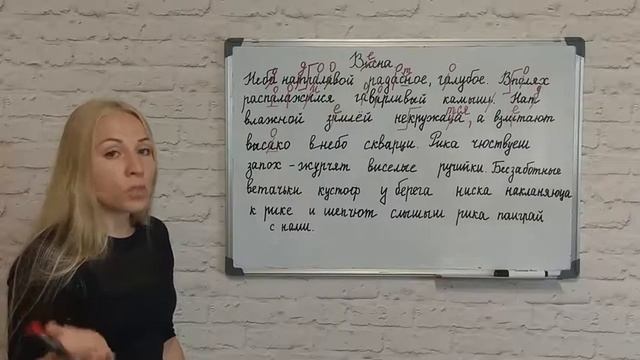 Висна
Неба натпалявой радасное, галубое. Вполях
распалажился гаварливый камыш. Нат
влажной зимлёй некружаца, а взитают
высако в небо скварци. Рика чюствуеш
запох - журчят виселые ручийки. Беззаботные
ветачьки кустоф у берега ниска накланяюца
к рике и шепчют слышыш рика паиграй
с нами.